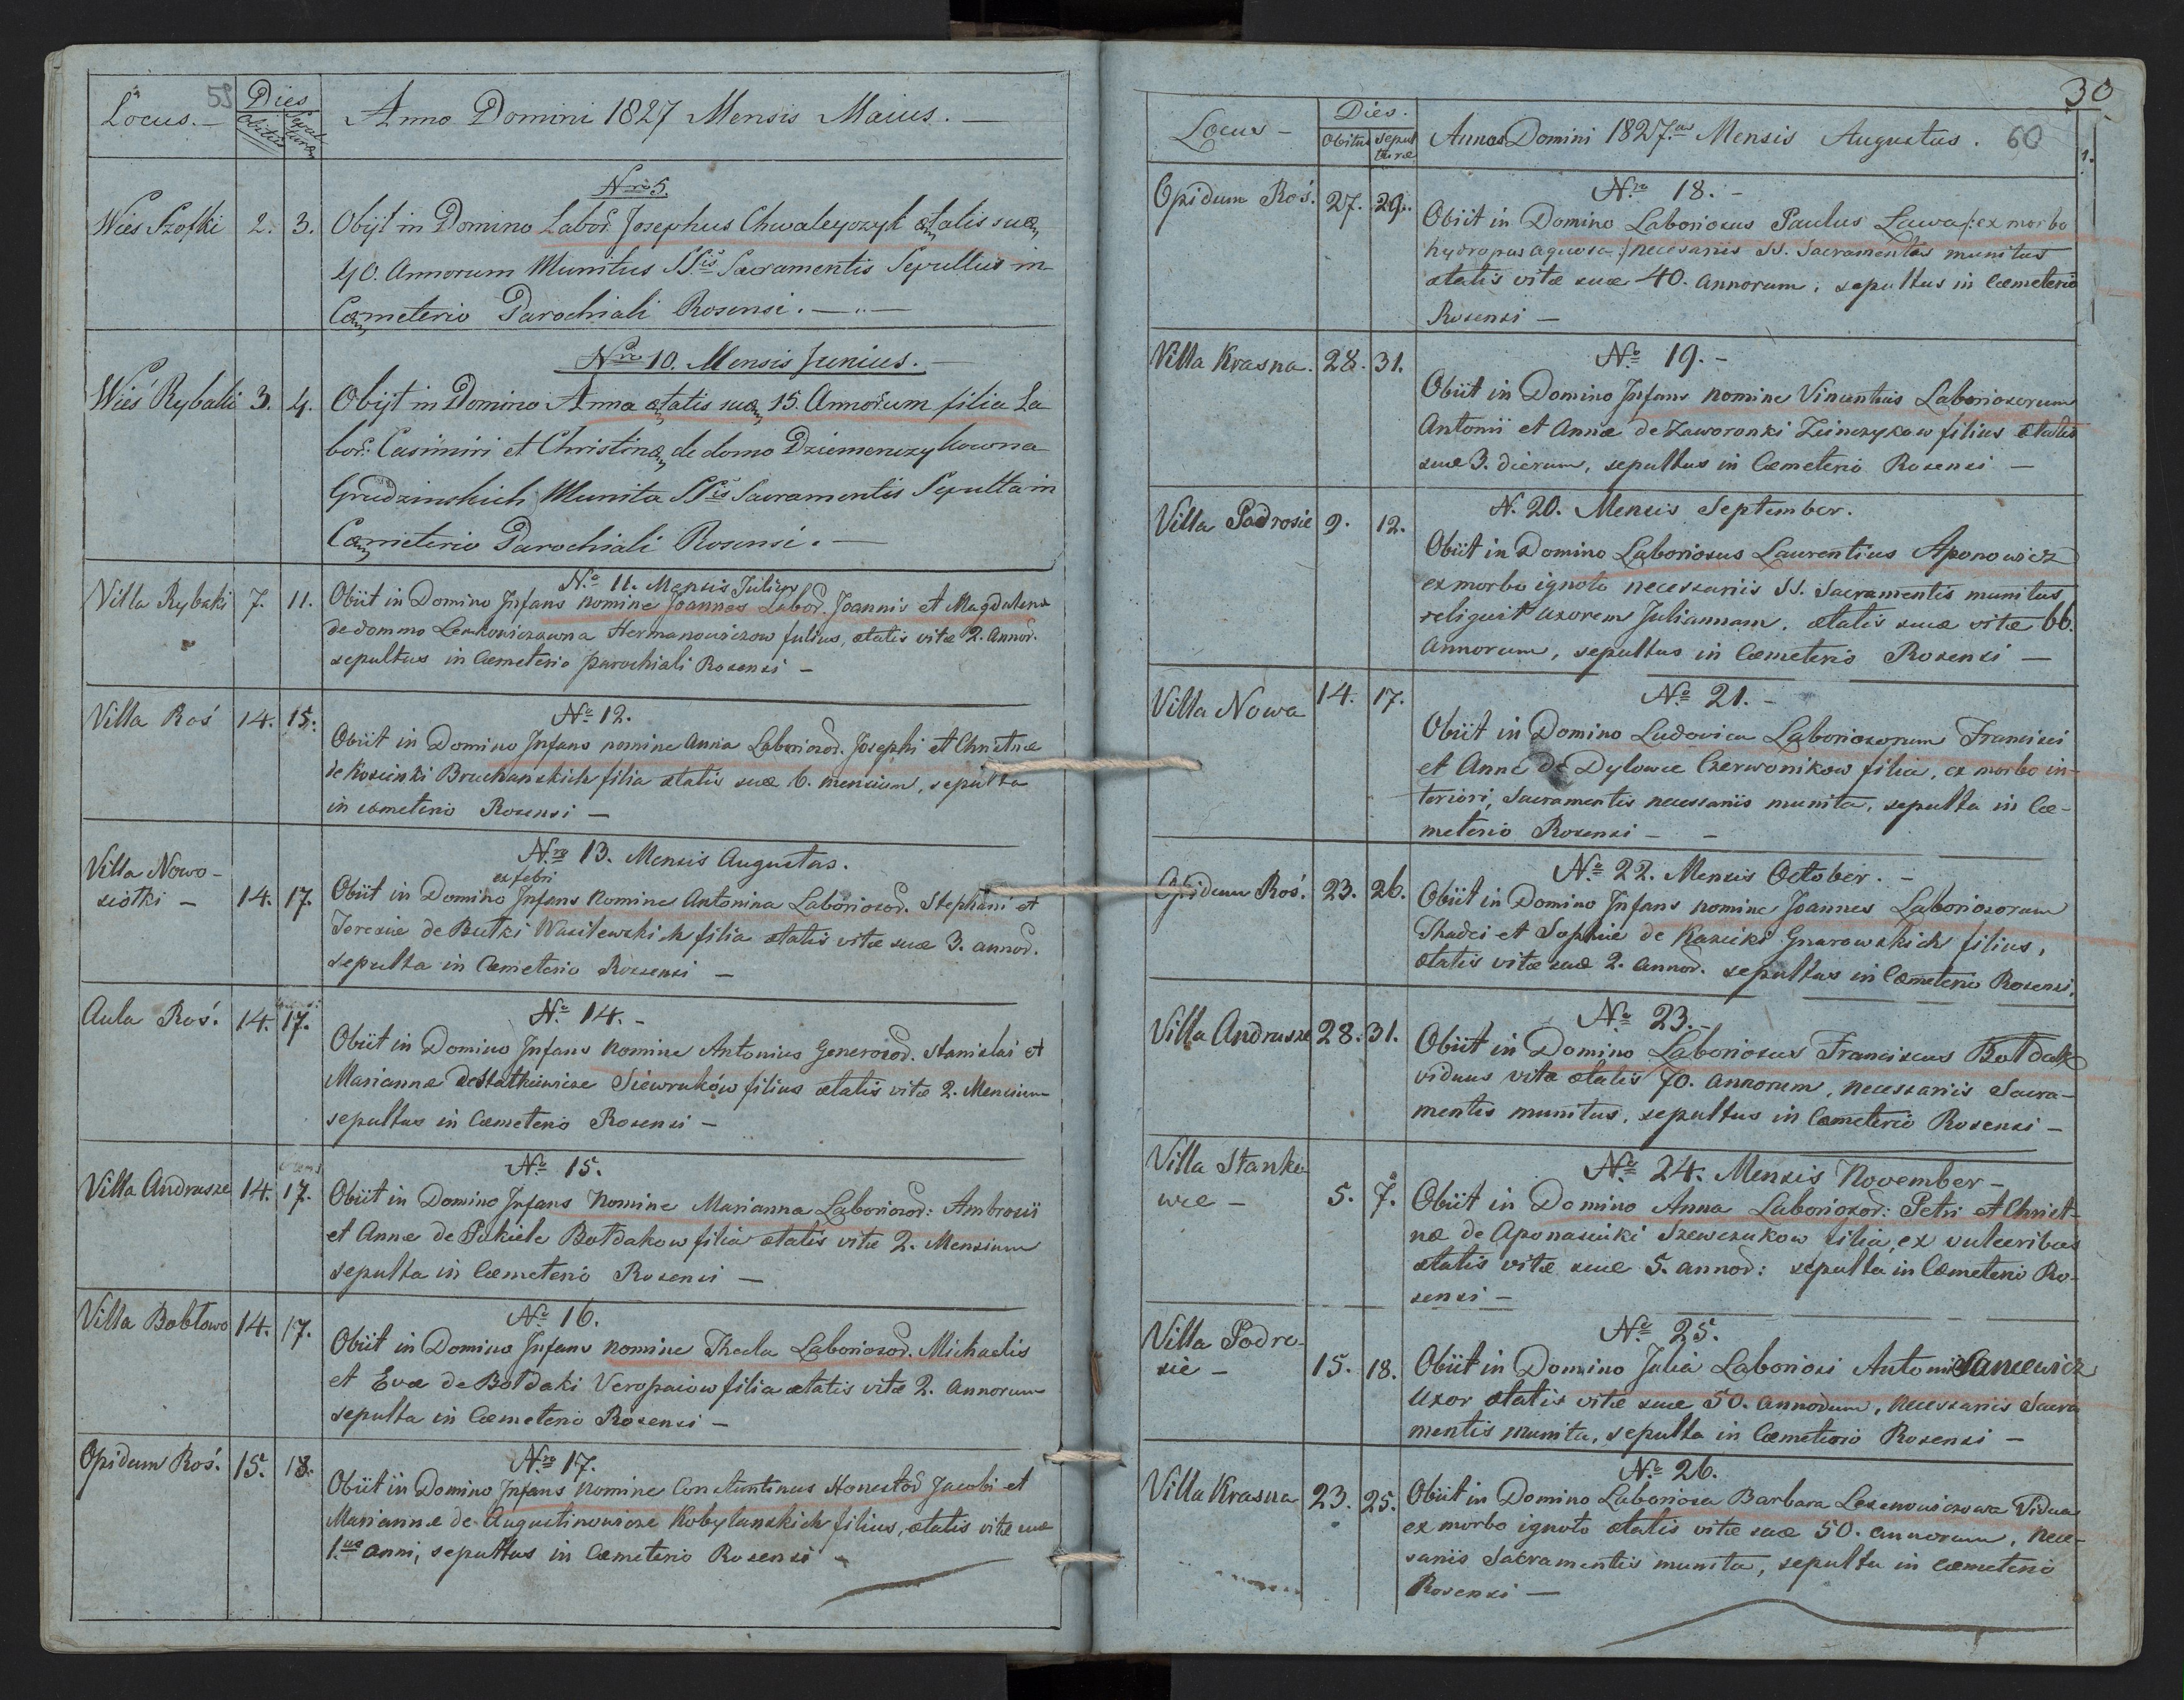 Locus. 59 Dies Obitus Sepulturæ Anno Domini 1827 Mensis Maius.
Nro 5.
Wies Szolki 2. 3. Obijt in Domino Labor. Josephus Chwaleyczyk ætatis suæ
40. Annorum Munitus SSis Sacramentis Sepultus in
Cæmeterio Parochiali Rosensi.
Nro 10. Mensis Junius.
Wieś Rybaki 3. 4. Obijt in Domino Anna ætatis suæ 15. Annorum filia La
bor: Casimiri et Christinæ de domo Dziemenczykowna
Grudzinskich Munita SSis Sacramentis Sepulta in
Cæmeterio Parochiali Rosensi.
No 11. Mensis Julius
Villa Rybaki 7. 11. Obiit in Domino Infans nomine Joannes Labor. Joannis et Magdalena
de dommo Lenkowiczowna Hermanowiczow fulius, ætatis vitæ 2. Annor.
sepultus in Cæmeterio parochiali Rosensi
No 12.
Villa Roś 14. 15. Obiit in Domino Infans nomine Anna Laborioror. Josephi et Christinæ
de Kosinski Bruchanskich filia ætatis suæ 6. mensium, sepulta
in cæmeterio Rosensi
Nro 13. Mensis Augustus.
ex febri
Villa Nowo-
siołki 14. 17. Obiit in Domino Infans nomine Antonina Laboriosor. Stephani et
Teresiæ de Butki Wasilewskich filia ætatis vitæ suæ 3. annor.
sepulta in Cæmeterio Rossensi
No 14.
Aula Roś. 14. 17. Obiit in Domino Infans nomine Antonius Generosor. Stanislai et
Mariannæ de Statkiewicze Siewruków filius ætatis vitæ 2. Mensium
sepultus in Cæmeterio Rosensi
No 15.
Villa Andrusze 14. 17. Obiit in Domino Infans nomine Marianna Laboriosor: Ambrosii
et Annæ de Pukiele Bołdakow filia ætatis vitæ 2. Mensium
sepulta in Cæmeterio Rosensi
No 16.
Villa Bobłowo 14. 17. Obiit in Domino Infans nomine Thecla Laboriosor. Michaelis
et Evæ de Bołdaki Veropaiow filia ætatis vitæ 2. Annorum
sepulta in Cæmeterio Rosensi
Nro 17.
Opidum Roś. 15. 18. Obiit in Domino Infans nomine Constantinus Honestor Jacobi et
Mariannæ de Augustinowicze Kobylanskich filius, ætatis vitæ suæ
1. anni, sepultus in Cæmeterio Rosensi
30
Locus Dies. Obitus Sepulturæ Annus Domini 1827. Mensis Augustus. 60
1.
Nro 18.
Opidum Roś. 27. 29. Obiit in Domino Laboriosus Paulus Ława /:ex morbo
hydropus aquosa:/ necesariis SS. Sacramentis munitus
ætatis vitæ suæ 40. annorum, sepultus in Cæmeterio
Rosensi
No 19.
Villa Krasna. 28. 31. Obiit in Domino Infans nomine Vincentius Laboriosorum
Antonii et Annæ de Zaworonki Zeinczykow filius ætatis
suæ 3. dierum, sepultus in Cæmeterio Rosensi
N. 20. Mensis September.
Villa Podrosie 9. 12. Obiit in Domino Laboriosus Laurentius Aponowicz
ex morbo ignoto necessariis SS. Sacramentis munitus,
reliquit uxorem Juliannam, ætatis suæ vitæ 66.
Annorum, sepultus in Cæmeterio Rosensi
No 21.
Villa Nowa 14. 17. Obiit in Domino Ludovica Laboriosorum Francisci
et Annæ de Dylowce Czerwonikow filia, ex morbo in-
teriori, Sacramentis necessariis munita, sepulta in Cæ-
meterio Rosensi
No 22. Mensis October.
Opidum Roś. 23. 26. Obiit in Domino Infans nomine Joannes Laboriosorum
Thadei et Sophiæ de Kasicki Gnarowskich filius,
ætatis vitæ suæ 2. annor. sepultus in Cæmeterio Rosensi.
No 23.
Villa Andrusze 28. 31. Obiit in Domino Laboriosus Franciscus Bołdak
viduus vitæ ætatis 70. annorum, necessariis Sacra-
mentis munitus, sepultus in Cæmeterio Rosensi
No 24. Mensis November
Villa Stankie-
wce 5. 7. Obiit in Domino Anna Laboriosor: Petri et Christ-
næ de Aponasciuki Szewczukow filia, ex vulceribus
ætatis vitæ suæ 5. annor: sepulta in Cæmeterio Ro-
sensi
No 25.
Villa Podro-
sie 15. 18. Obiit in Domino Julia Laboriosi Antonii Sancewicz
Uxor ætatis vitæ suæ 50. annorum, necessariis Sacra
mentis munita, sepulta in Cæmeterio Rosensi
No 26.
Villa Krasna 23. 25. Obiit in Domino Laboriosa Barbara Lexenowiczowa Vidua
ex morbo ignoto ætatis vitæ suæ 50. annorum, nece-
sariis Sacramentis munita, sepulta in cæmeterio
Rosensi